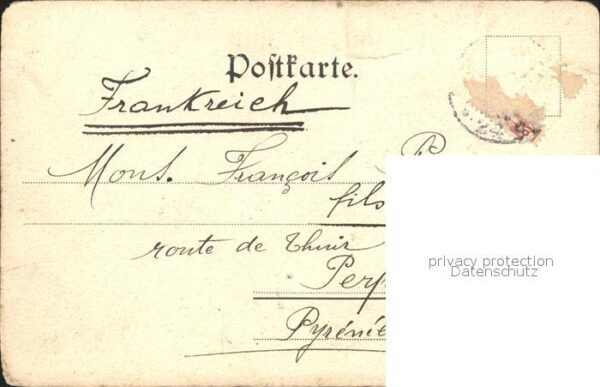 Postkarte.
Frankreich
Mons. François
fils
route de Thuir
privacy protection
Datenschutz